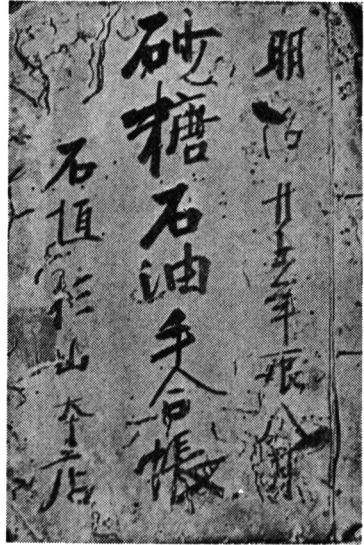 明治廿五年
砂糖石油手合帳
石垣 杉山本店